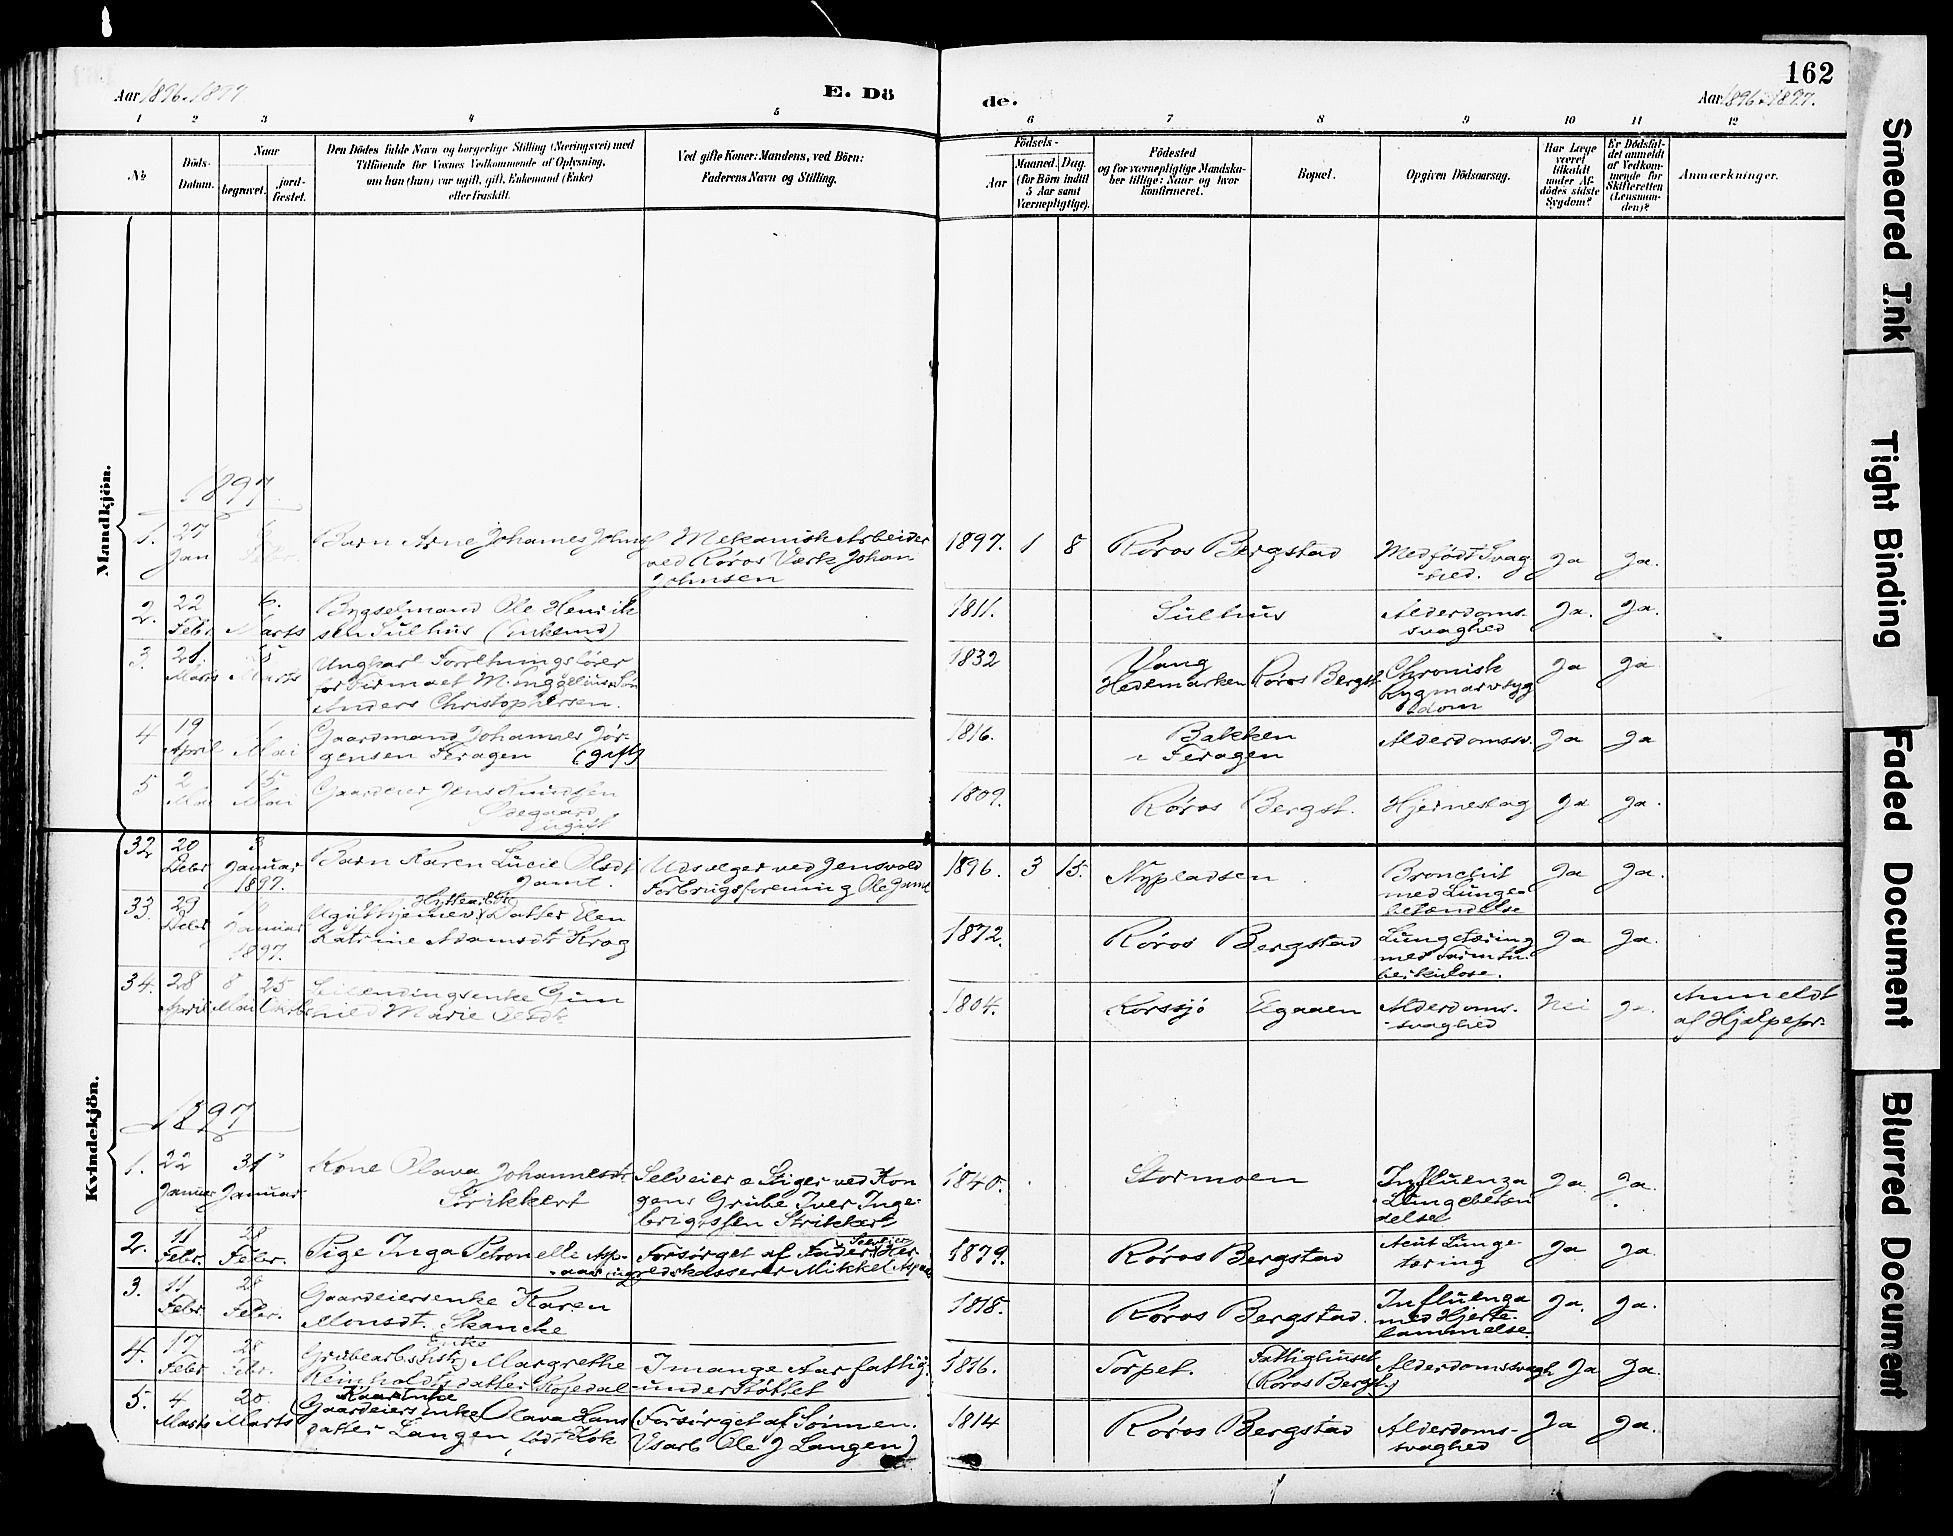 162
Aar 1896-1897
E. Dö
de.
Aar 1896-1897.
1 2 3 4 5 6 7 8 9 10 11 12
No
Döds-
Datum.
Naar
begravet.
jord-
fæstet.
Den Dödes fulde Navn og borgerlige Stilling (Næringsvei) med
Tilföiende for Voxnes Vedkommende af Oplysning,
om han (hun) var ugift, gift, Enkemand (Enke)
eller fraskilt.
Ved gifte Koner: Mandens, ved Börn:
Faderens Navn og Stilling.
Födsels-
Aar
Maaned.
Dag.
(for Börn indtil
5 Aar samt
Værnepligtige).
Födested
og for værnepligtige Mandska-
ber tillige: Naar og hvor
konfirmeret.
Bopæl.
Opgiven Dödsaarsag.
Har Læge
været
tilkaldt
under Af-
dødes sidste
Sygdom?
Er Dödsfal-
det anmeldt
af Vedkom-
mende for
Skifteretten
(Lensman-
den)?
Anmærkninger.
Mandkjön.
1897
1. 27 Jan Febr.
Barn Arne Johannes Johns
Mekanisk Arbeider
ved Røros Værk Johan
Johnsen
1897. 1 8 Røros Bergstad
Medfødt Svag
-hed.
Ja Ja.
2. 22 Febr 6. Marts
Bygselmand Ole Henrik
sen Sulhus (Enkemd)
1811. Sulhus
Alderdoms-
svaghed
Ja. Ja.
3. 21. Marts Marts
Ungkarl Forretningsfører
for Firmaet M. Engzelius & Søn
Anders Christophersen.
1832
Vang
Hedemarken
Røros Bergst.
Chronisk
Rygmarvsyg
dom
Ja Ja
4 19 April Mai
Gaardmand Johannes Jør-
gensen Feragen (gift)
1816.
Bakken
i Feragen
Alderdomssv.
Ja Ja
5 2 Mai 15 Mai
Gaardeier Jens Knudsen
Ødegaard
ugift
1809. Røros Bergst. Hjerneslag Ja Ja.
Kvindekjön.
32 20 Debr 3 Januar 1897.
Barn Karen Lucie Olsdt
Jamt.
Udsælger ved Jensvold
Forbrugsforening Ole Jamt
1896. 3 15. Nypladsen
Bronchit
med Lunge-
betændelse
Ja Ja.
33. 29 Debr Januar 1897.
Ugift hjemmev. Datter Elen
Katrine Adamsdt Krog
1872. Røros Bergstad
Lungetæring
med Tarmtu-
berkulose.
Ja Ja.
34. 28 April 8 Mai 25
Leilendingsenke Gun
hild Marie Olsdt.
1804. Korssjø Elgaaen
Alderdoms-
-svaghed
Nei Ja.
Anmeldt
af Hjælpefor-
1897
1. 22 Januar 31 Januar
Kone Olava Johannesdt.
Strikkert
Selveier & Stiger ved Kon
gens Grube Iver Inge-
brigtssen Strikkert
1840. Stormoen
Influenza
Lungebetæn
delse
Ja Ja.
2. 11 Febr. 28 Febr.
Pige Inga Petronelle Asp-
aas, ug.
Forsørget af Fader, Her
redskasserer Mikkel Aspaas
1879. Røros Bergstad
Acut Lunge-
tæring
Ja Ja
3. 11 Febr 28 Febr.
Gaardeiersenke Karen
Monsdt. Skancke
1818. Røros Bergstad.
Influenza
med Hjerte-
lammelse.
Ja. Ja.
4. 17 Febr 28 Febr.
Enke
Margrethe
Reinholdtsdatter Kojedal
I mange Aar fattig-
understøttet
1816. Torpet.
Fattighuset
(Røros Bergst.)
Alderdomssvagh Ja Ja.
5. 4 Marts 20 Marts
Gaardeiersenke Olava Hans
datter Langen født Kok
(Forsørget af Sønnen.
Vsarb. Ole J Langen)
1814 Røros Bergstad
Alderdoms-
svaghed
Ja Ja.
Smeared Ink
Tight Binding
Faded Document
Blurred Document